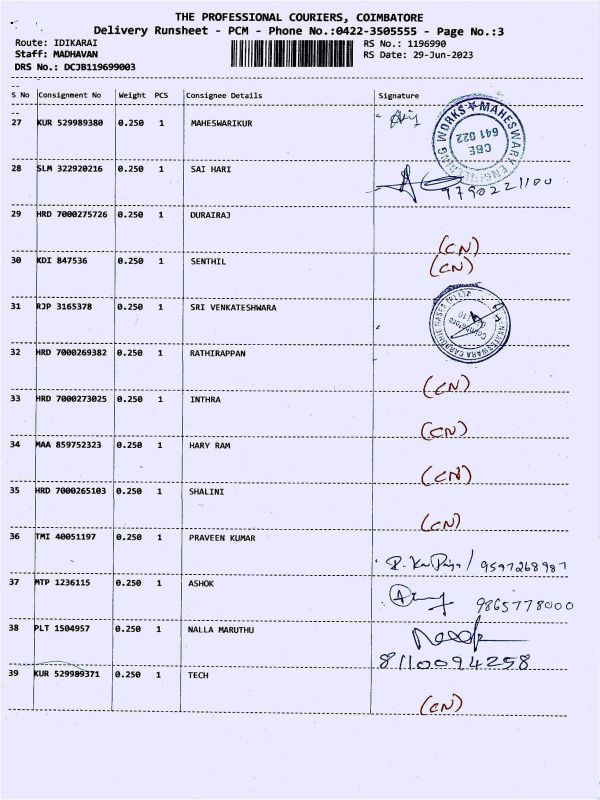 THE PROFESSIONAL COURIERS, COIMBATORE
Delivery Runsheet - PCM - Phone No.:0422-3505555 - Page No.:3
Route: IDIKARAI RS No.: 1196990
Staff: MADHAVAN RS Date: 29-Jun-2023
DRS No.: DCJB119699003
S No Consignment No Weight PCS Consignee Details Signature
27 KUR 529989380 0.250 1 MAHESWARIKUR
MAHESWARI ENGINEERING WORKS
CBE
641 022
28 SLM 322920216 0.250 1 SAI HARI
9790221100
29 HRD 7000275726 0.250 1 DURAIRAJ
(CN)
30 KDI 847536 0.250 1 SENTHIL
(CN)
31 RJP 3165378 0.250 1 SRI VENKATESHWARA
Coimbatore
32 HRD 7000269382 0.250 1 RATHIRAPPAN
(CN)
33 HRD 7000273025 0.250 1 INTHRA
(CN)
34 MAA 859752323 0.250 1 HARY RAM
(CN)
35 HRD 7000265103 0.250 1 SHALINI
(CN)
36 TMI 40051197 0.250 1 PRAVEEN KUMAR
9597268987
37 MTP 1236115 0.250 1 ASHOK
9865778000
38 PLT 1504957 0.250 1 NALLA MARUTHU
8110094258
39 KUR 529989371 0.250 1 TECH
(CN)